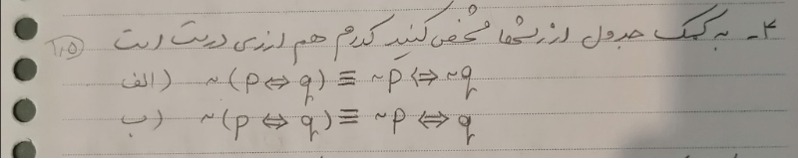 ۴- به کمک جدول ارزشها مشخص کنید کدام هم ارزی درست است ۱٫۵
الف) ~(p ⇔ q) ≡ ~p ⇔ ~q
ب) ~(p ⇔ q) ≡ ~p ⇔ q